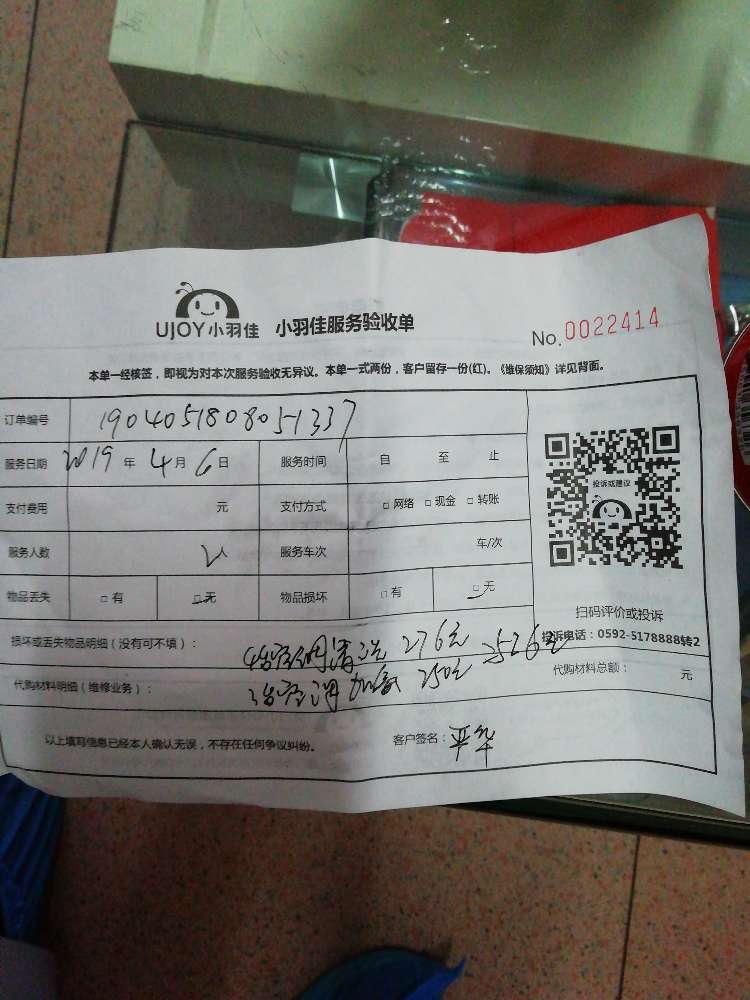 UJOY小羽佳 小羽佳服务验收单
No. 0022414
本单一经核签,即视为对本次服务验收无异议。本单一式两份,客户留存一份(红)。《维保须知》详见背面。
订单编号 1904051808051337
服务日期 2019年4月6日 服务时间 自 至 止
支付费用 元 支付方式 □网络 □现金 □转账
服务人数 人 服务车次 车/次
物品丢失 □有 □无 物品损坏 □有 □无
投诉或建议
扫码评价或投诉
投诉电话:0592-5178888转2
损坏或丢失物品明细(没有可不填): 4台空调清洗 276元 =526元
代购材料明细(维修业务): 空调加氟 250元 代购材料总额: 元
以上填写信息已经本人确认无误,不存在任何争议纠纷。 客户签名:严华